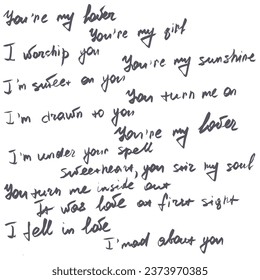 You're my lover
You're my girl
I worship you
You're my sunshine
I'm sweet on you
You turn me on
I'm drawn to you
You're my lover
I'm under your spell
sweetheart, you stir my soul
You turn me inside out
It was love at first sight
I fell in love
I'mad about you
shutterstock.com · 2373970385